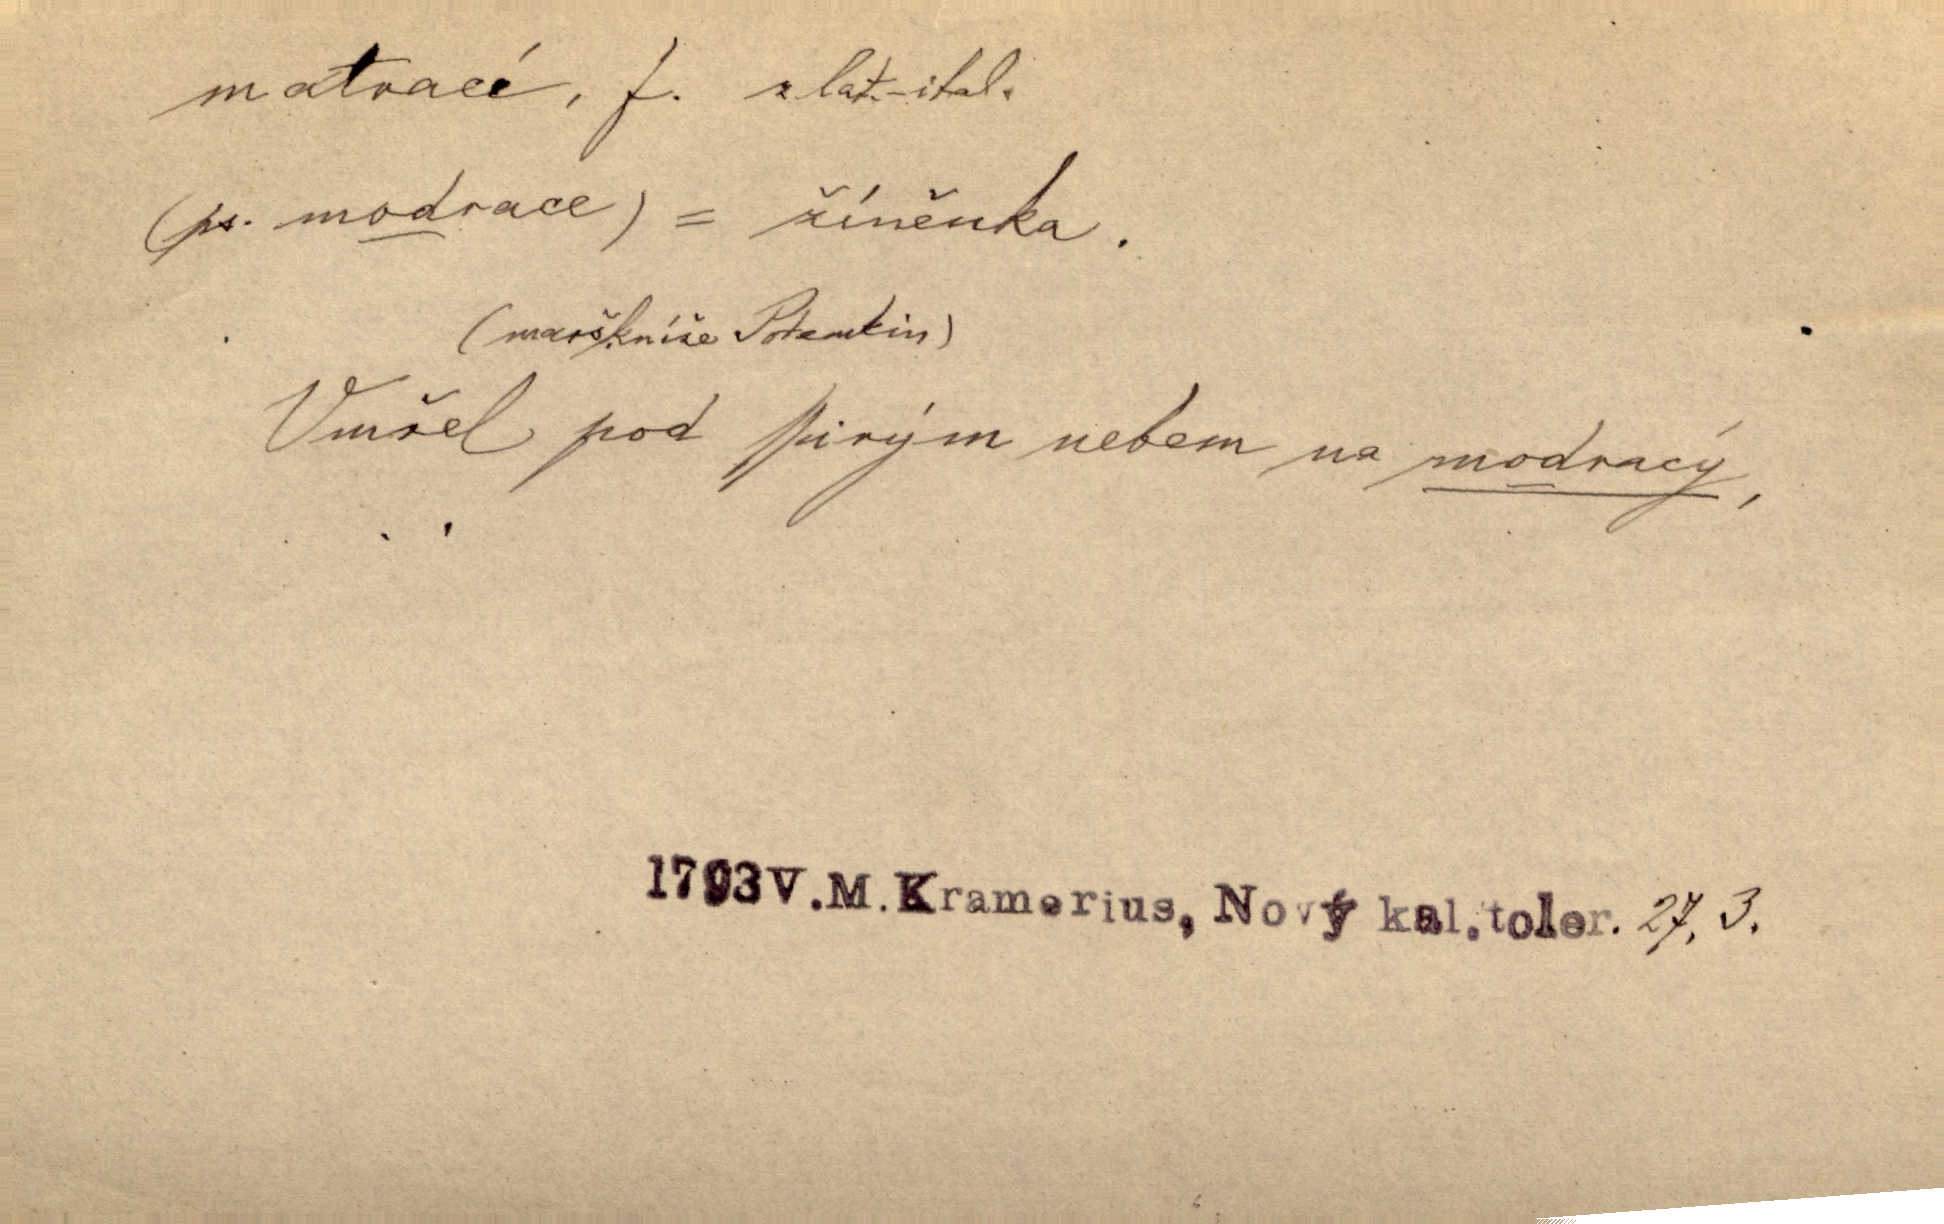 matrací, f. z lat.-ital.
(ps. modrace) = žíněnka.
(marš. kníže Potemkin)
Vmřel pod ssirým nebem na modracý,
1793 V.M.Kramerius, Nový kal.toler. 27, 3.